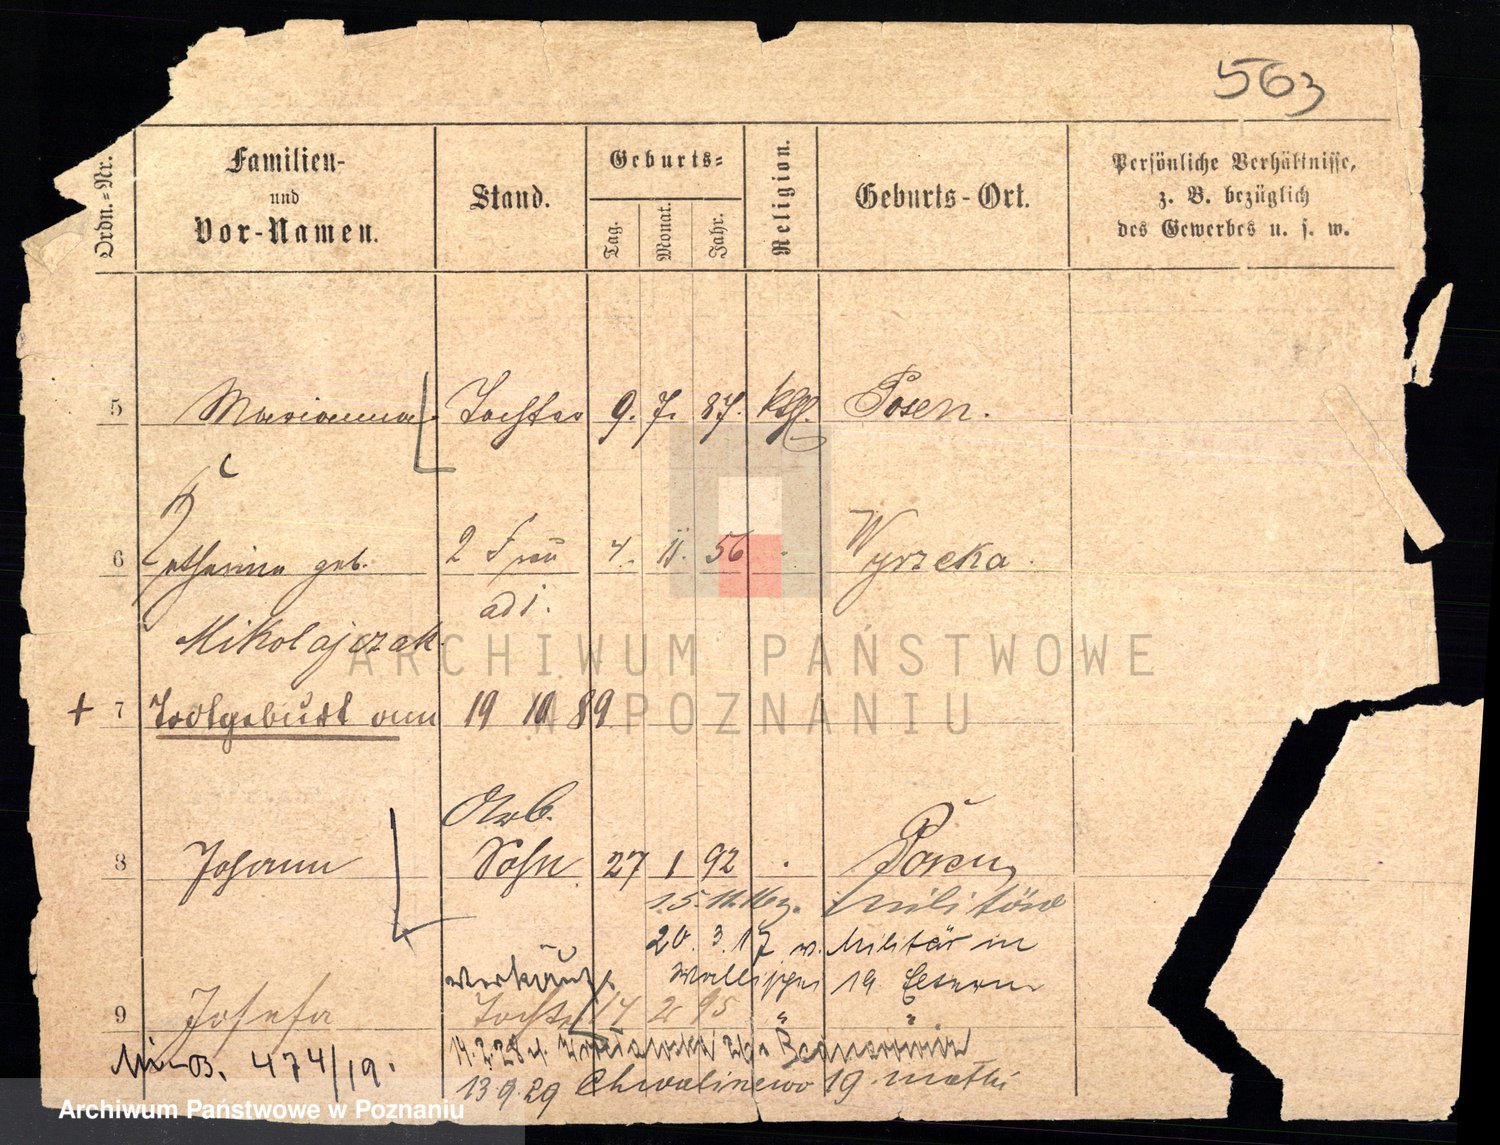 563
Ordn.-Nr.
Familien-
und
Vor-Namen.
Stand.
Geburts-
Tag.
Monat.
Jahr.
Religion.
Geburts-Ort.
Persönliche Verhältnisse,
z. B. bezüglich
des Gewerbes u. s. w.
5 Marianna Tochter 9. 7. 87. kth. Posen.
6 Katharina geb. 2 Frau 4. 11. 56 Wyrzeka.
ad 1.
Mikolajczak
+ 7 Todtgeburt am 19 10 89
Arb.
8 Johann Sohn 27 1 92 Posen
15.11.16 z. Militär
20. 3. 17 v. Militär in
Verkäuf. Wallischei 19 Eltern
9 Josefa Tochter 14 2 95 " "
Nr. 474/19. 14.2.28 v.
13 9 29 Chwalinewo 19. Matki
ARCHIWUM PAŃSTWOWE
W POZNANIU
Archiwum Państwowe w Poznaniu